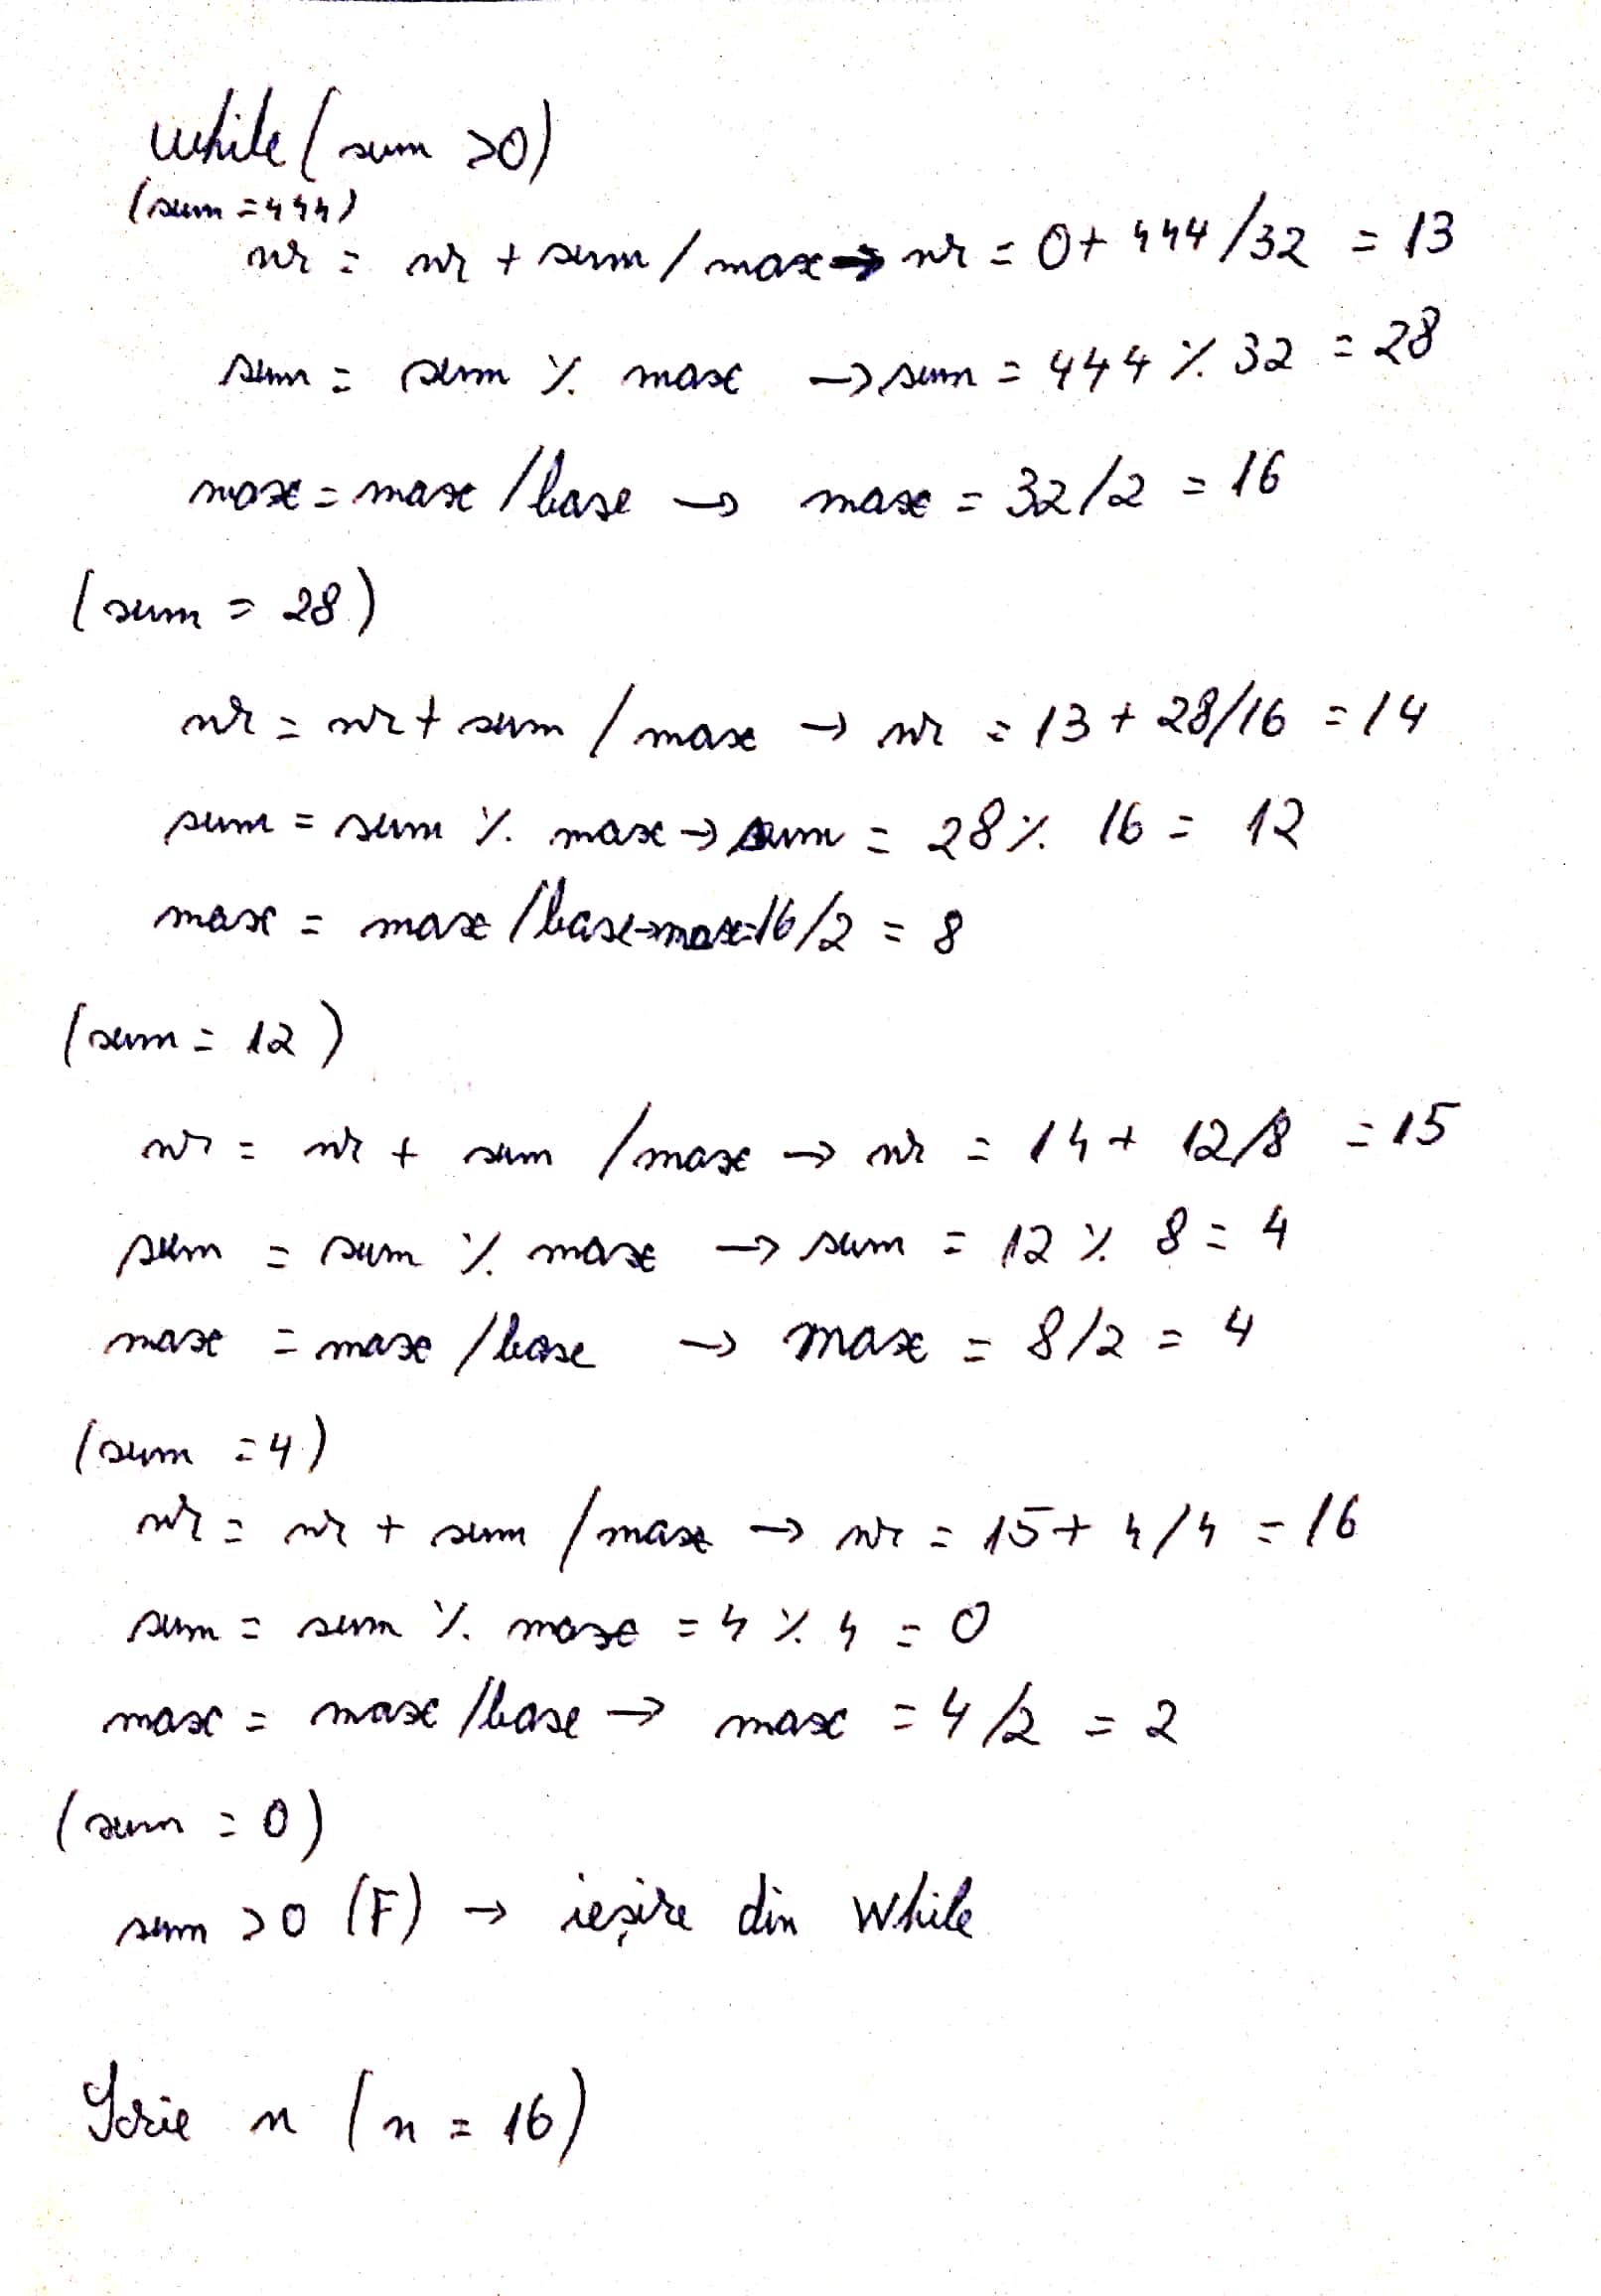 while (sum >0)
(sum = 444)
nr = nr + sum / max → nr = 0 + 444 / 32 = 13
sum = sum % max → sum = 444 % 32 = 28
max = max / base → max = 32 / 2 = 16
(sum = 28)
nr = nr + sum / max → nr = 13 + 28/16 = 14
sum = sum % max → sum = 28 % 16 = 12
max = max / base → max = 16/2 = 8
(sum = 12)
nr = nr + sum / max → nr = 14 + 12/8 = 15
sum = sum % max → sum = 12 % 8 = 4
max = max / base → max = 8/2 = 4
(sum = 4)
nr = nr + sum / max → nr = 15 + 4/4 = 16
sum = sum % max = 4 % 4 = 0
max = max / base → max = 4/2 = 2
(sum = 0)
sum >0 (F) → ieșire din While
Scrie n (n = 16)